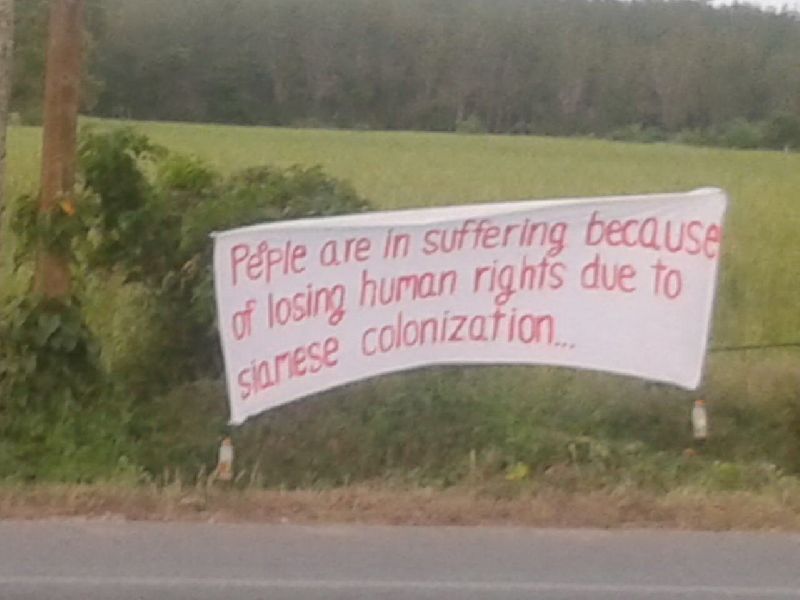 People are in suffering because
of losing human rights due to
siamese colonization...